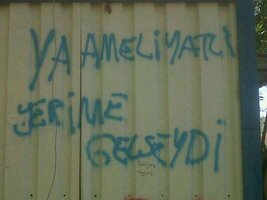 YA AMELİYATLI
YERİNE
GELSEYDİ